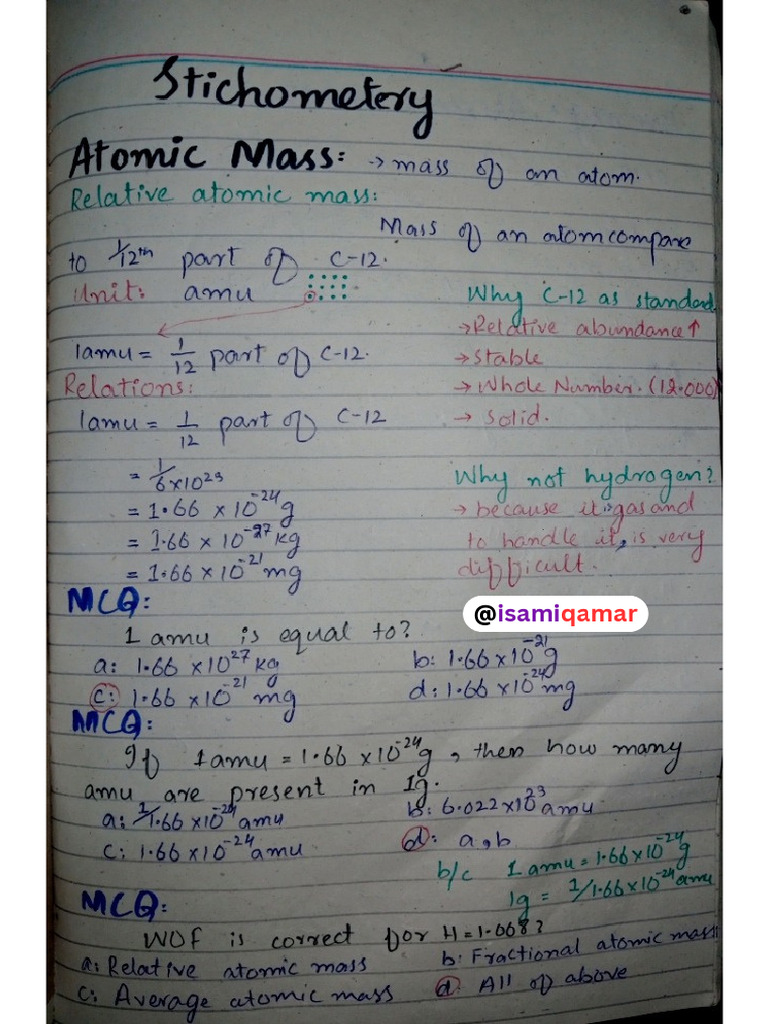 Stichometery
Atomic Mass: → mass of an atom.
Relative atomic mass:
Mass of an atom compare
to 1/12th part of C-12.
Unit: amu
1amu = 1/12 part of C-12.
Relations:
1amu = 1/12 part of C-12
= 1/6×10²³
= 1.66 × 10⁻²⁴g
= 1.66 × 10⁻²⁷kg
= 1.66 × 10⁻²¹mg
Why C-12 as standard
→ Relative abundance↑
→ Stable
→ Whole Number. (12.000)
→ Solid.
Why not hydrogen?
→ because it is gas and
to handle it, is very
difficult.
@isamiqamar
MCQ:
1 amu is equal to?
a: 1.66 ×10²⁷ kg b: 1.66×10⁻²¹g
c: 1.66 ×10⁻²¹ mg d: 1.66×10⁻²⁴mg
MCQ:
If 1amu = 1.66 ×10⁻²⁴g, then how many
amu are present in 1g.
a: 1/1.66×10⁻²⁴ amu b: 6.022×10²³ amu
c: 1.66×10⁻²⁴ amu d: a,b
b/c 1 amu = 1.66×10⁻²⁴g
1g = 1/1.66×10⁻²⁴ amu
MCQ:
WOF is correct for H=1.008?
a: Relative atomic mass b: Fractional atomic mass
c: Average atomic mass d: All of above